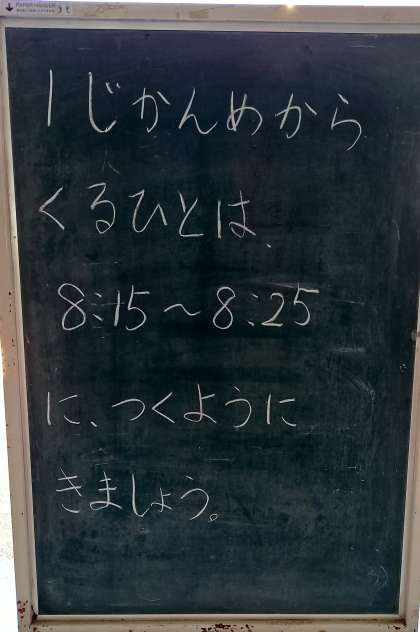 1じかんめから
くるひとは、
8:15～8:25
に、つくように
きましょう。